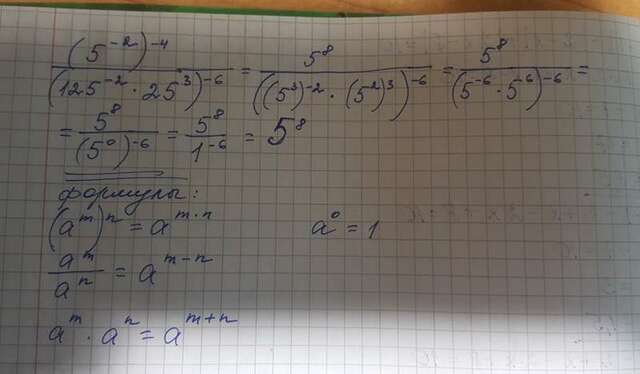 (5⁻²)⁻⁴ / (125⁻² · 25³)⁻⁶ = 5⁸ / ((5³)⁻² · (5²)³)⁻⁶ = 5⁸ / (5⁻⁶ · 5⁻⁶)⁻⁶ =
= 5⁸ / (5⁰)⁻⁶ = 5⁸ / 1⁻⁶ = 5⁸
формулы:
(aᵐ)ⁿ = aᵐ·ⁿ a⁰ = 1
aᵐ / aⁿ = aᵐ⁻ⁿ
aᵐ · aⁿ = aᵐ⁺ⁿ